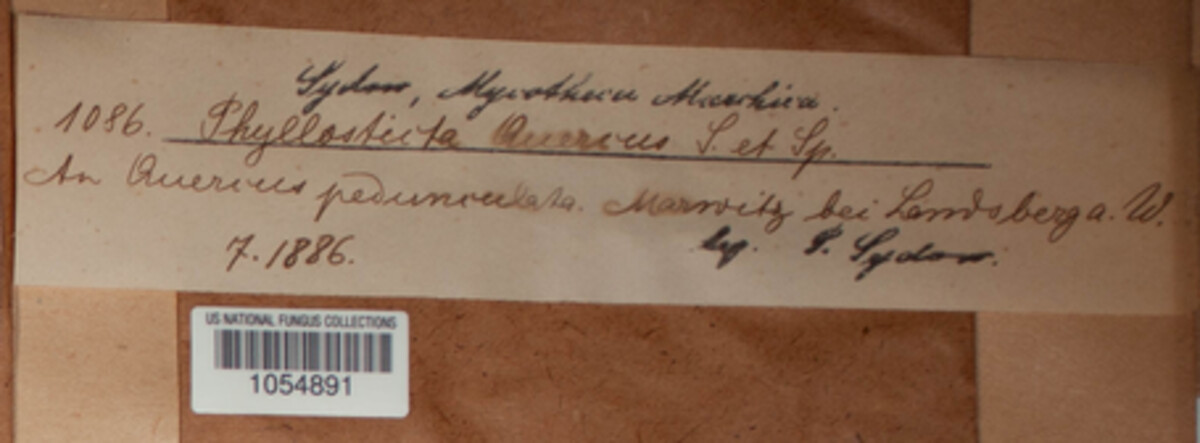 Sydow, Mycotheca Marchica.
1086. Phyllosticta Quercus S. et Sp.
An Quercus pedunculata. Marwitz bei Landsberg a. W.
7. 1886. leg. P. Sydow.
US NATIONAL FUNGUS COLLECTIONS
1054891